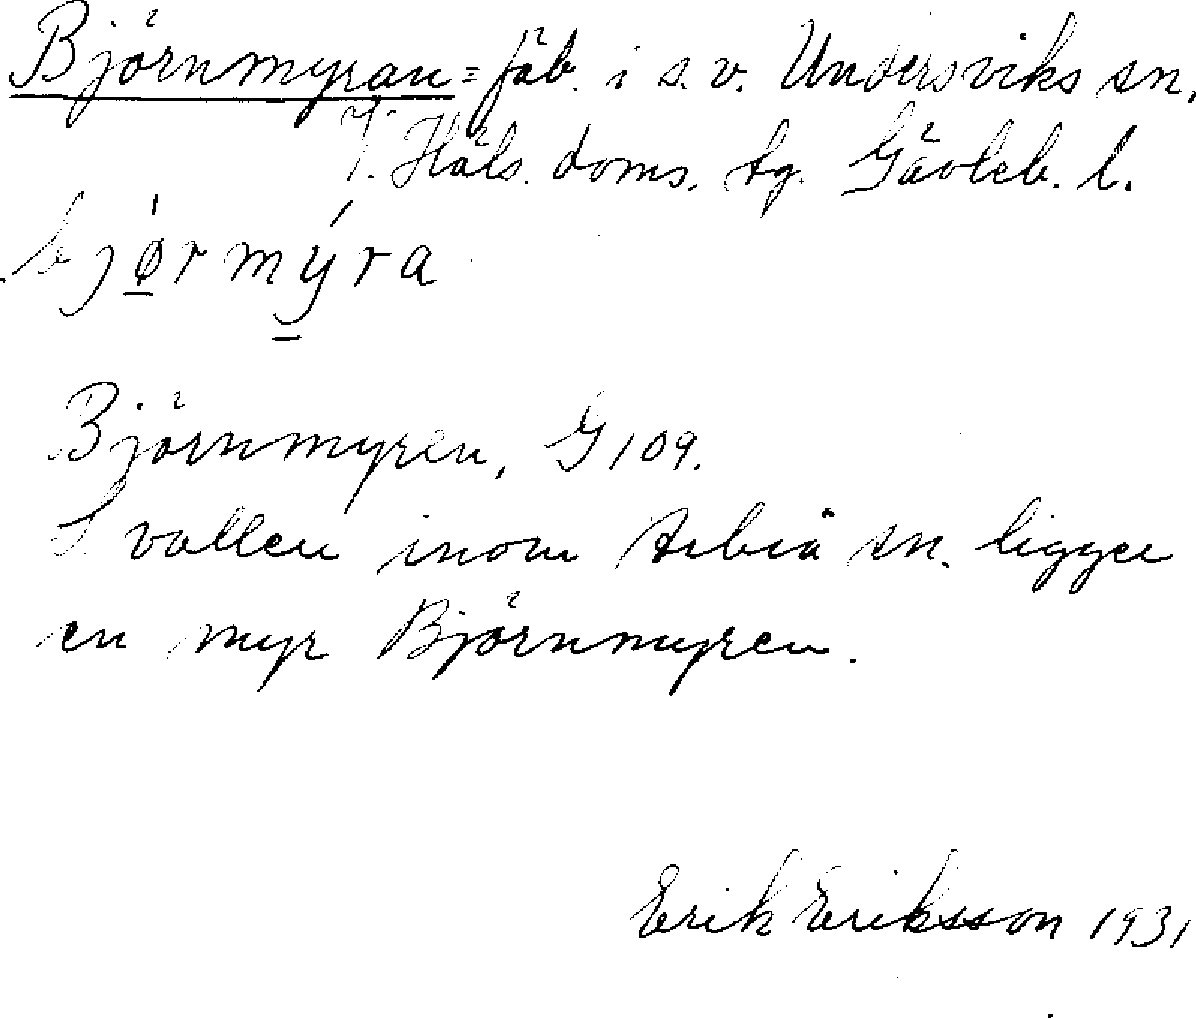 Björnmyran = fäb. i s.v. Undersviks sn.
V. Häls. doms. tg. Gävleb. l.
bjø̱rmý̱ra
Björnmyren, G 109.
S vallen inom Arbrå sn. ligger
en myr Björnmyren.
Erik Eriksson 1931